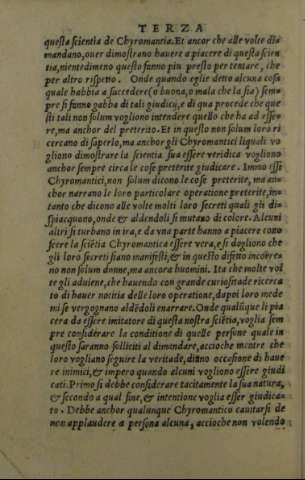 TERZA
questa scientia de Chyromantia. Et ancor che alle volte dimandano, ouer dimostrano
hauere a piacere di questa scientia, nientedimeno questo fanno piu presto per tentare, che
per altro rispetto. Onde quando eglie detto alcuna cosa
quale habbia a succedere (o buona, o mala che la sia) sempre
si fanno gabba di tali giudicij, e di qua procede che questi
tali non solum vogliono intendere quello che ha ad essere,
ma anchor del preterito. Et in questo non solum loro ricercano
di saperlo, ma anchor gli Chyromantici liquali vogliono
dimostrare la scientia sua essere veridica vogliono
anchor sempre circa le cose preterite giudicare. Immo essi
Chyromantici, non solum dicono le cose preterite, ma anchor
narrano le loro particolare operatione preterite, intanto
che dicono alle volte molti loro secreti quali gli dispiacquono,
onde & aldendoli si mutano di colore. Alcuni
altri si turbano in ira, e da vna parte hanno a piacere conoscere
la sciẽtia Chyromantica essere vera, e si dogliono che
gli loro secreti siano manifesti, & in questo difetto incorreno
non solum donne, ma ancora huomini. Ita che molte volte
gli aduient, che hauendo con grande curiositade ricercato
di hauer notitia delle loro operatione, dapoi loro medemi
se vergognano aldẽdoli enarrare. Onde qualũque li piacera
da essere imitatore di questa nostra sciẽtia, voglia sempre
considerare la conditione di quelle persone quale in
questo saranno solliciti al dimandare, accioche mentre che
loro vogliano seguire la veritade, diano occasione di hauere
inimici, & impero quando alcuni vogliono essere giudicati.
Primo si debbe considerare tacitamente la sua natura,
& secondo a qual fine, & intentione voglia esser giudicato.
Debbe anchor qualunque Chyromantico cauitarsi de
non applaudere a persona alcuna, accioche non volendo